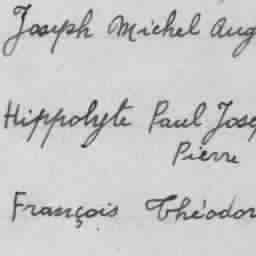 Joseph Michel Aug
Hippolyte Paul Jose
Pierre
François Théodor